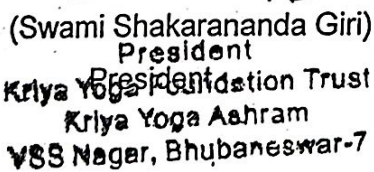 (Swami Shakarananda Giri)
President
President
Kriya Yoga Foundation Trust
Kriya Yoga Ashram
VSS Nagar, Bhubaneswar-7